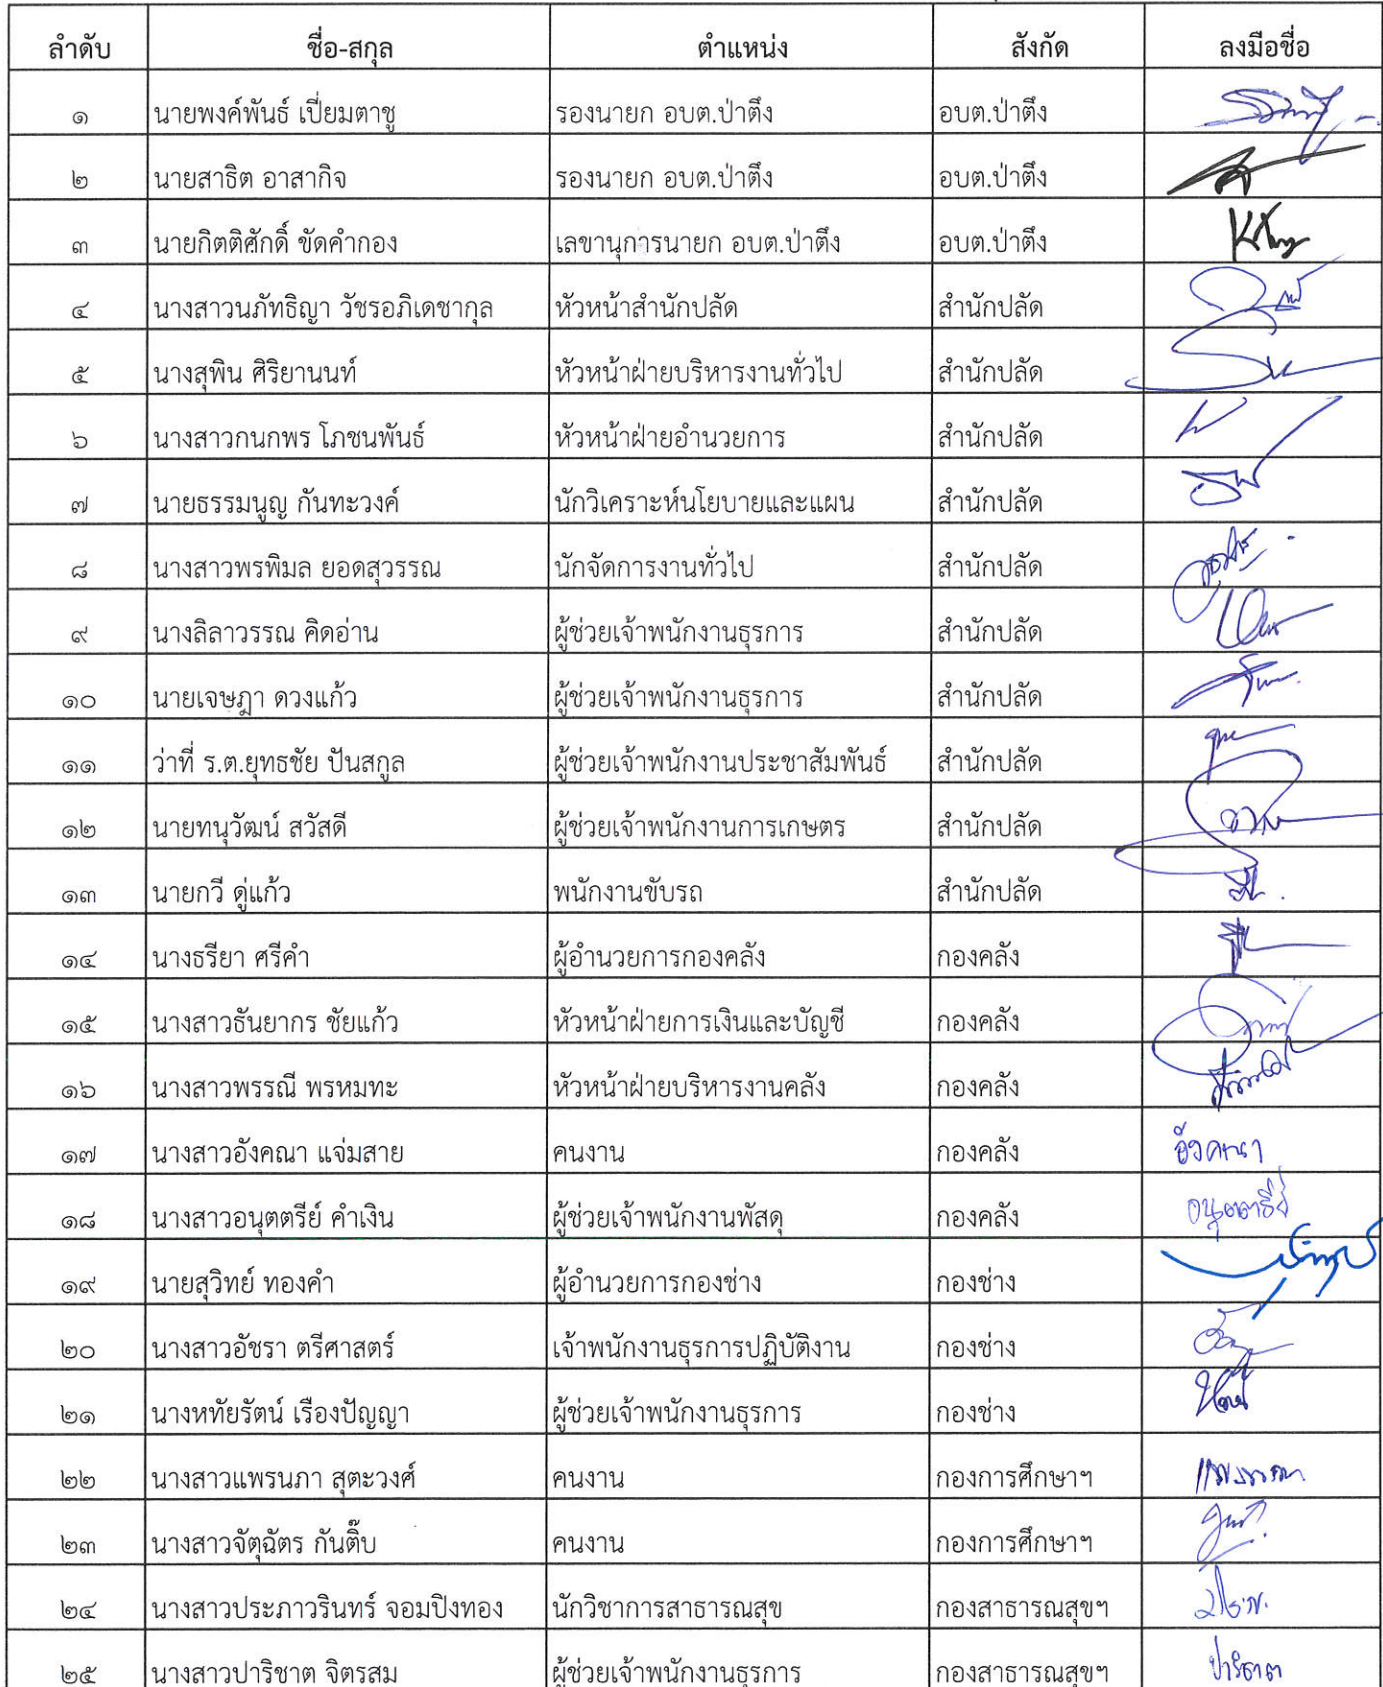 ลำดับ ชื่อ-สกุล ตำแหน่ง สังกัด ลงมือชื่อ
๑ นายพงค์พันธ์ เปี่ยมตาชู รองนายก อบต.ป่าตึง อบต.ป่าตึง
๒ นายสาธิต อาสากิจ รองนายก อบต.ป่าตึง อบต.ป่าตึง
๓ นายกิตติศักดิ์ ขัดคำกอง เลขานุการนายก อบต.ป่าตึง อบต.ป่าตึง
๔ นางสาวนภัทธิญา วัชรอภิเดชากุล หัวหน้าสำนักปลัด สำนักปลัด
๕ นางสุพิน ศิริยานนท์ หัวหน้าฝ่ายบริหารงานทั่วไป สำนักปลัด
๖ นางสาวกนกพร โภชนพันธ์ หัวหน้าฝ่ายอำนวยการ สำนักปลัด
๗ นายธรรมนูญ กันทะวงค์ นักวิเคราะห์นโยบายและแผน สำนักปลัด
๘ นางสาวพรพิมล ยอดสุวรรณ นักจัดการงานทั่วไป สำนักปลัด
๙ นางลิลาวรรณ คิดอ่าน ผู้ช่วยเจ้าพนักงานธุรการ สำนักปลัด
๑๐ นายเจษฎา ดวงแก้ว ผู้ช่วยเจ้าพนักงานธุรการ สำนักปลัด
๑๑ ว่าที่ ร.ต.ยุทธชัย ปันสกูล ผู้ช่วยเจ้าพนักงานประชาสัมพันธ์ สำนักปลัด
๑๒ นายทนุวัฒน์ สวัสดี ผู้ช่วยเจ้าพนักงานการเกษตร สำนักปลัด
๑๓ นายกวี ดู่แก้ว พนักงานขับรถ สำนักปลัด
๑๔ นางธรียา ศรีคำ ผู้อำนวยการกองคลัง กองคลัง
๑๕ นางสาวธันยากร ชัยแก้ว หัวหน้าฝ่ายการเงินและบัญชี กองคลัง
๑๖ นางสาวพรรณี พรหมทะ หัวหน้าฝ่ายบริหารงานคลัง กองคลัง
๑๗ นางสาวอังคณา แจ่มสาย คนงาน กองคลัง อังคณา
๑๘ นางสาวอนุตตรีย์ คำเงิน ผู้ช่วยเจ้าพนักงานพัสดุ กองคลัง อนุตตรีย์
๑๙ นายสุวิทย์ ทองคำ ผู้อำนวยการกองช่าง กองช่าง
๒๐ นางสาวอัชรา ตรีศาสตร์ เจ้าพนักงานธุรการปฏิบัติงาน กองช่าง
๒๑ นางหทัยรัตน์ เรืองปัญญา ผู้ช่วยเจ้าพนักงานธุรการ กองช่าง
๒๒ นางสาวแพรนภา สุตะวงศ์ คนงาน กองการศึกษาฯ
๒๓ นางสาวจัตุฉัตร กันติ๊บ คนงาน กองการศึกษาฯ
๒๔ นางสาวประภาวรินทร์ จอมปิงทอง นักวิชาการสาธารณสุข กองสาธารณสุขฯ
๒๕ นางสาวปาริชาต จิตรสม ผู้ช่วยเจ้าพนักงานธุรการ กองสาธารณสุขฯ ปาริชาต